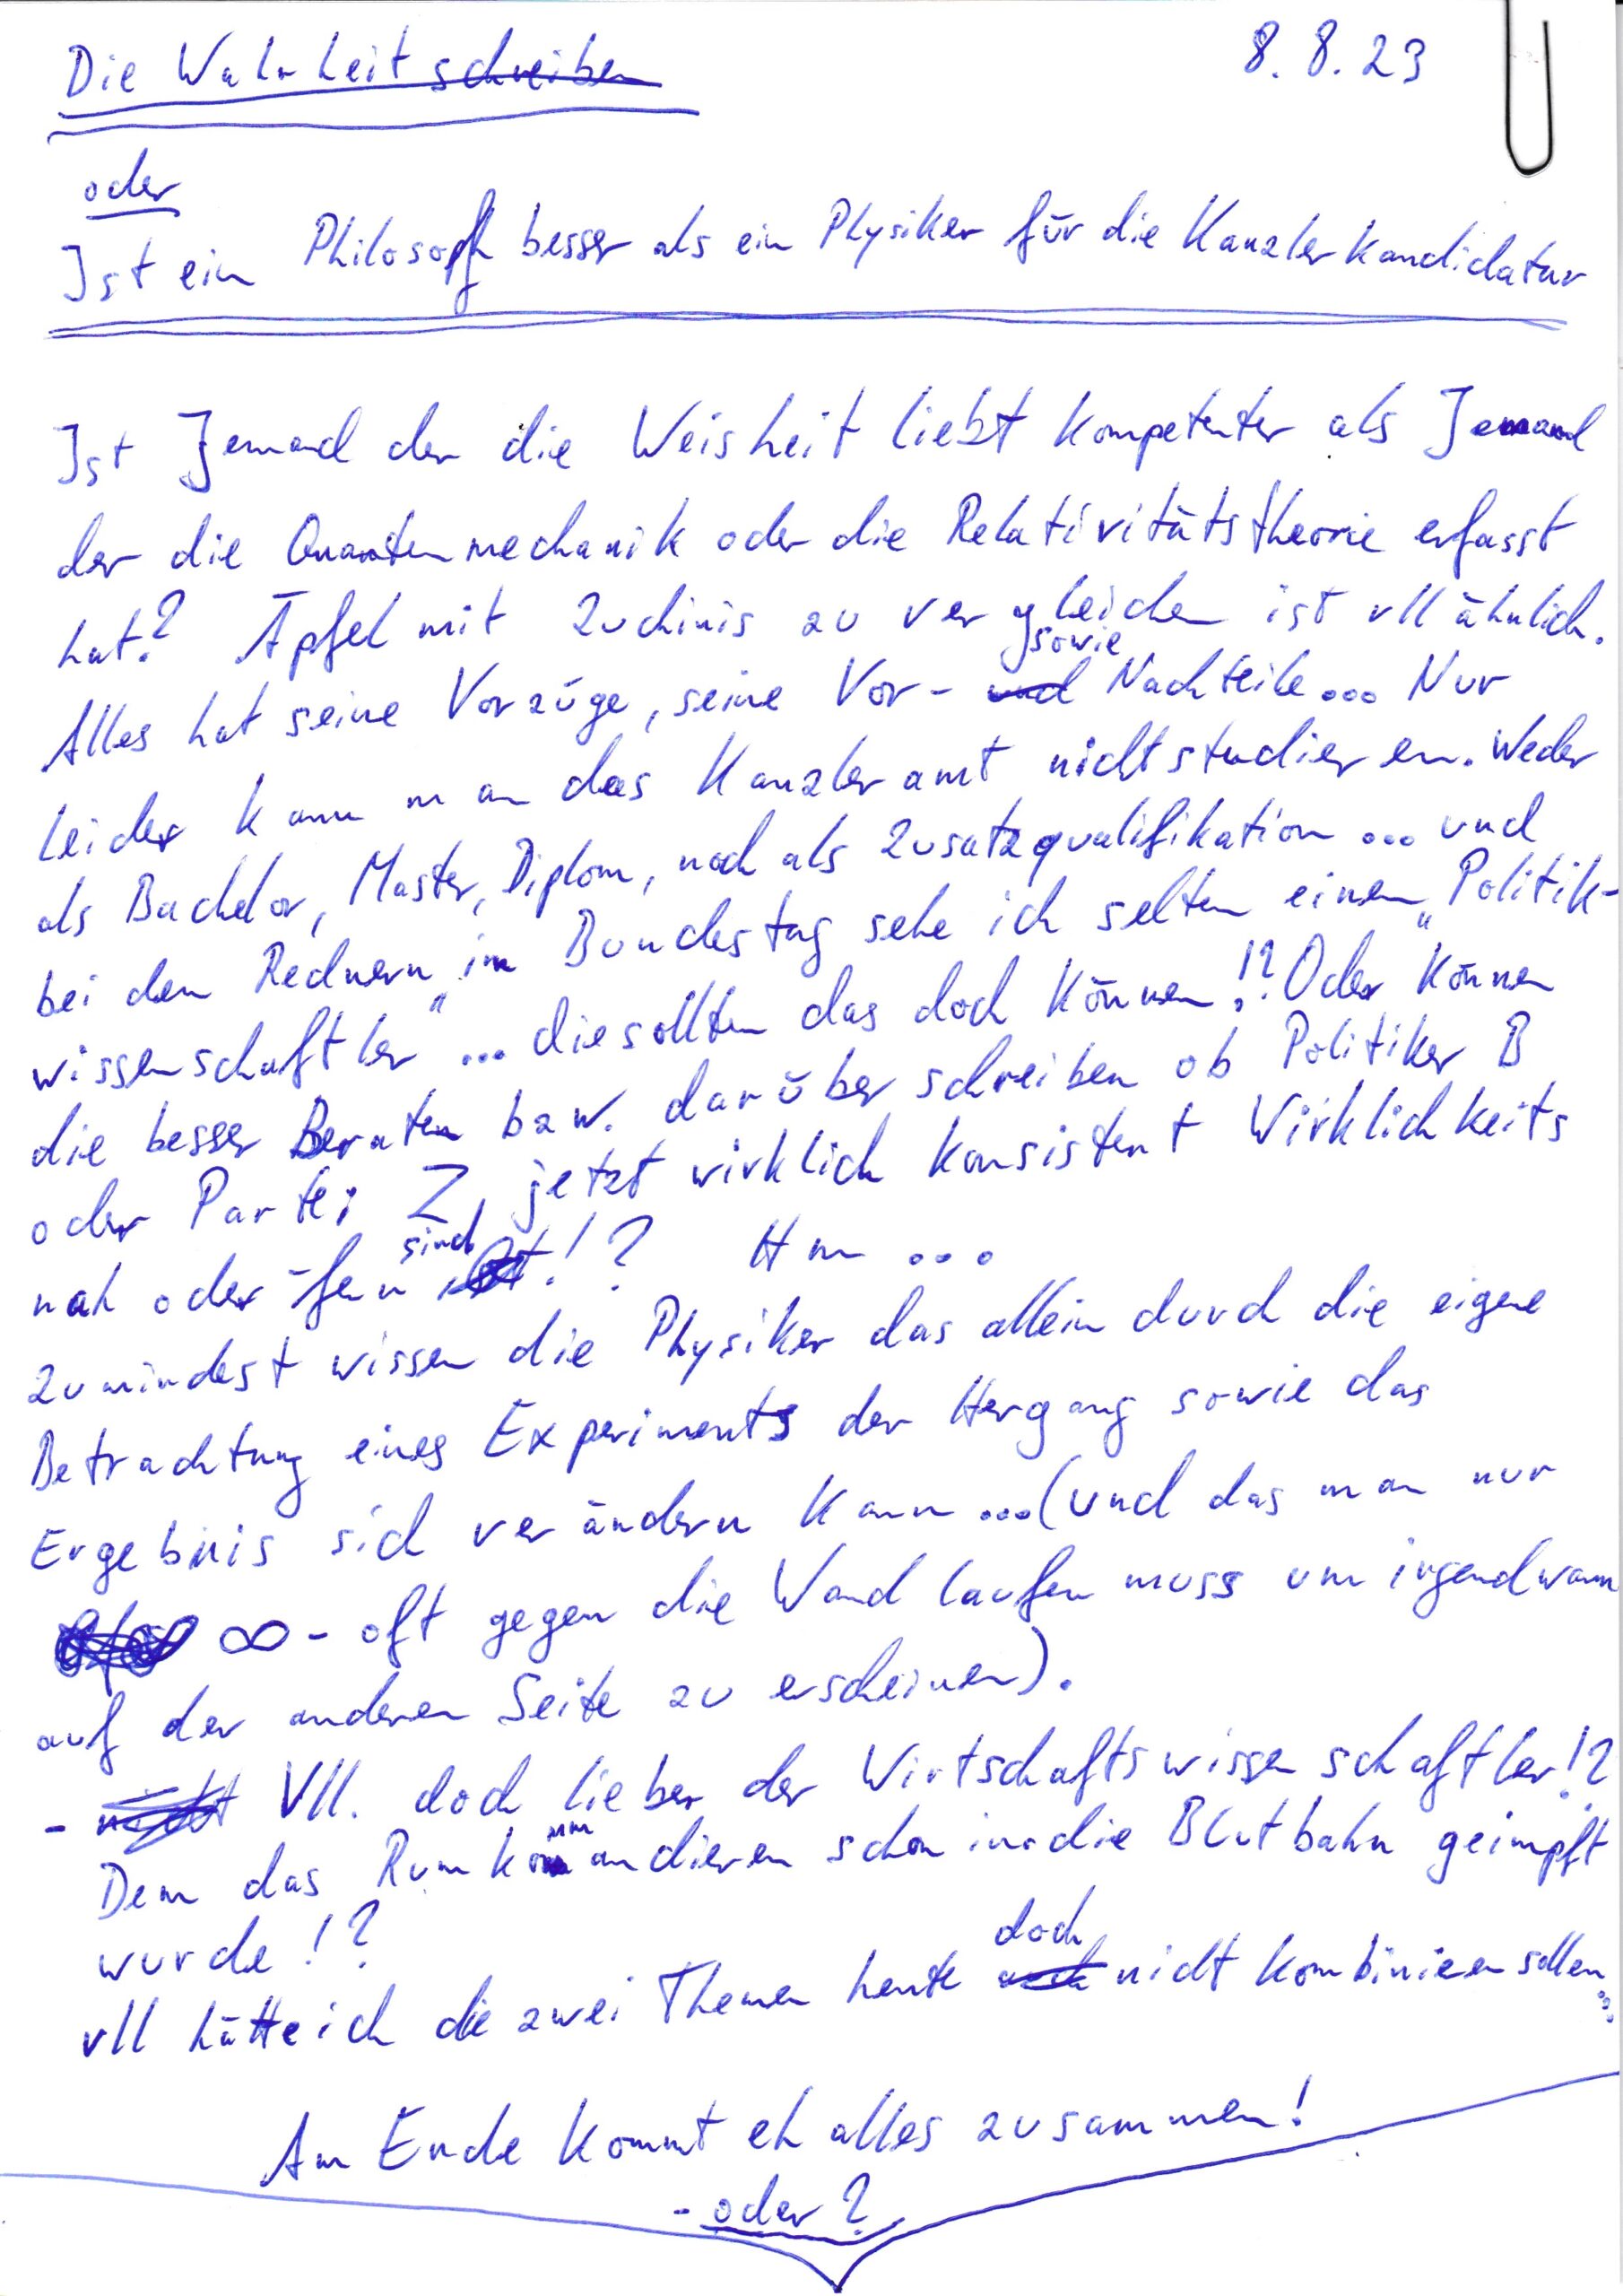 Die Wahrheit schreiben 8.8.23
oder
Ist ein Philosoph besser als ein Physiker für die Kanzlerkandidatur
Ist Jemand der die Weisheit liebt kompetenter als Jemand
der die Quantenmechanik oder die Relativitätstheorie erfasst
hat? Äpfel mit Zuchinis zu vergleichen ist vll ähnlich.
Alles hat seine Vorzüge, seine Vor- und sowie Nachteile... Nur
leider kann man das Kanzleramt nicht studieren. Weder
als Bachelor, Master, Diplom, noch als Zusatzqualifikation ... und
bei den Rednern" im Bundestag sehe ich selten einen „Politik-
wissenschaftler" ... die sollten das doch können!? Oder können
die besser Beraten bzw. darüber schreiben ob Politiker B
oder Partei Z jetzt wirklich konsistent Wirklichkeits
nah oder -fern sind!? Hm ...
zumindest wissen die Physiker das allein durch die eigene
Betrachtung eines Experiments der Hergang sowie das
Ergebnis sich verändern kann ... (und das man nur
∞ - oft gegen die Wand laufen muss um irgendwann
auf der anderen Seite zu erscheinen).
- nicht Vll. doch lieber der Wirtschaftswissenschaftler!?
Dem das Rumkommandieren schon in die Blutbahn geimpft
wurde!?
vll hätte ich die zwei Themen heute doch nicht kombinieren sollen
Am Ende kommt eh alles zusammen!
- oder?